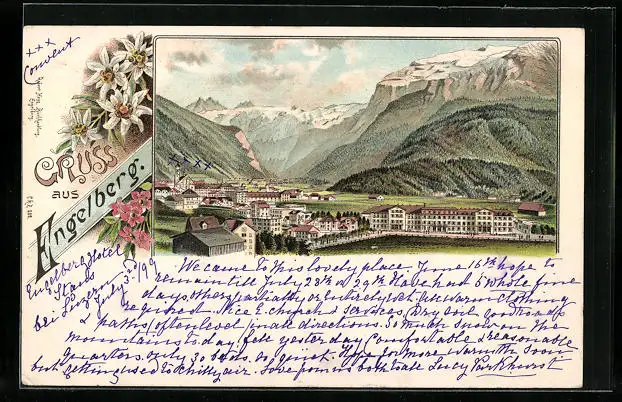 xxx
Convent
GRUSS
AUS
Engelberg.
xxxx
Engelberg Hotel
Stans
bei Luzern
July 2nd/99
We came to this lovely place June 16th hope to
remain till July 28th or 29th Have had 5 whole fine
days others partially or entirely wet. Use warm clothing
required. Nice E. church & services. Dry soil good roads
paths often level in all directions. So much snow on the
mountains to day, fell yesterday Comfortable & reasonable
quarters. only 30 beds. so quiet. Hope for more warmth soon
but getting used to chilly air. Love from us both to all Lucy Parkhurst